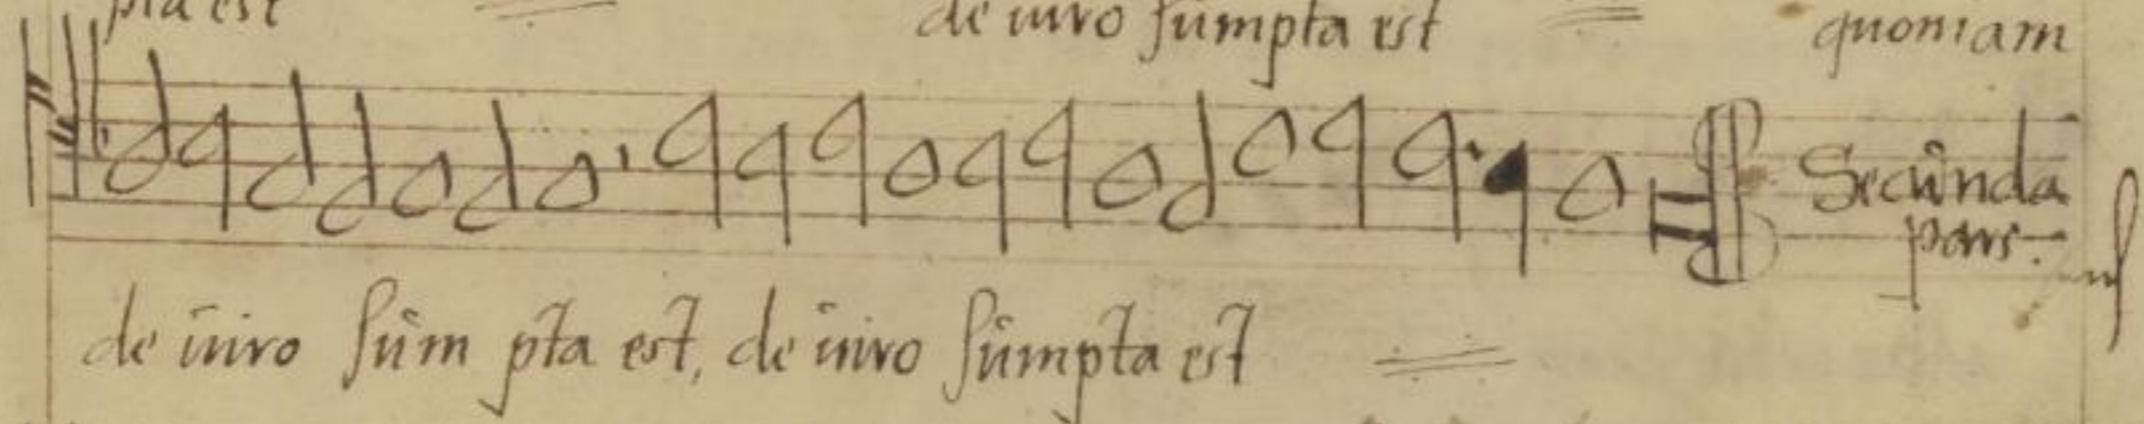 pta est de uiro sumpta est quoniam
Secunda
pars.
de uiro sum pta est, de uiro sumpta est